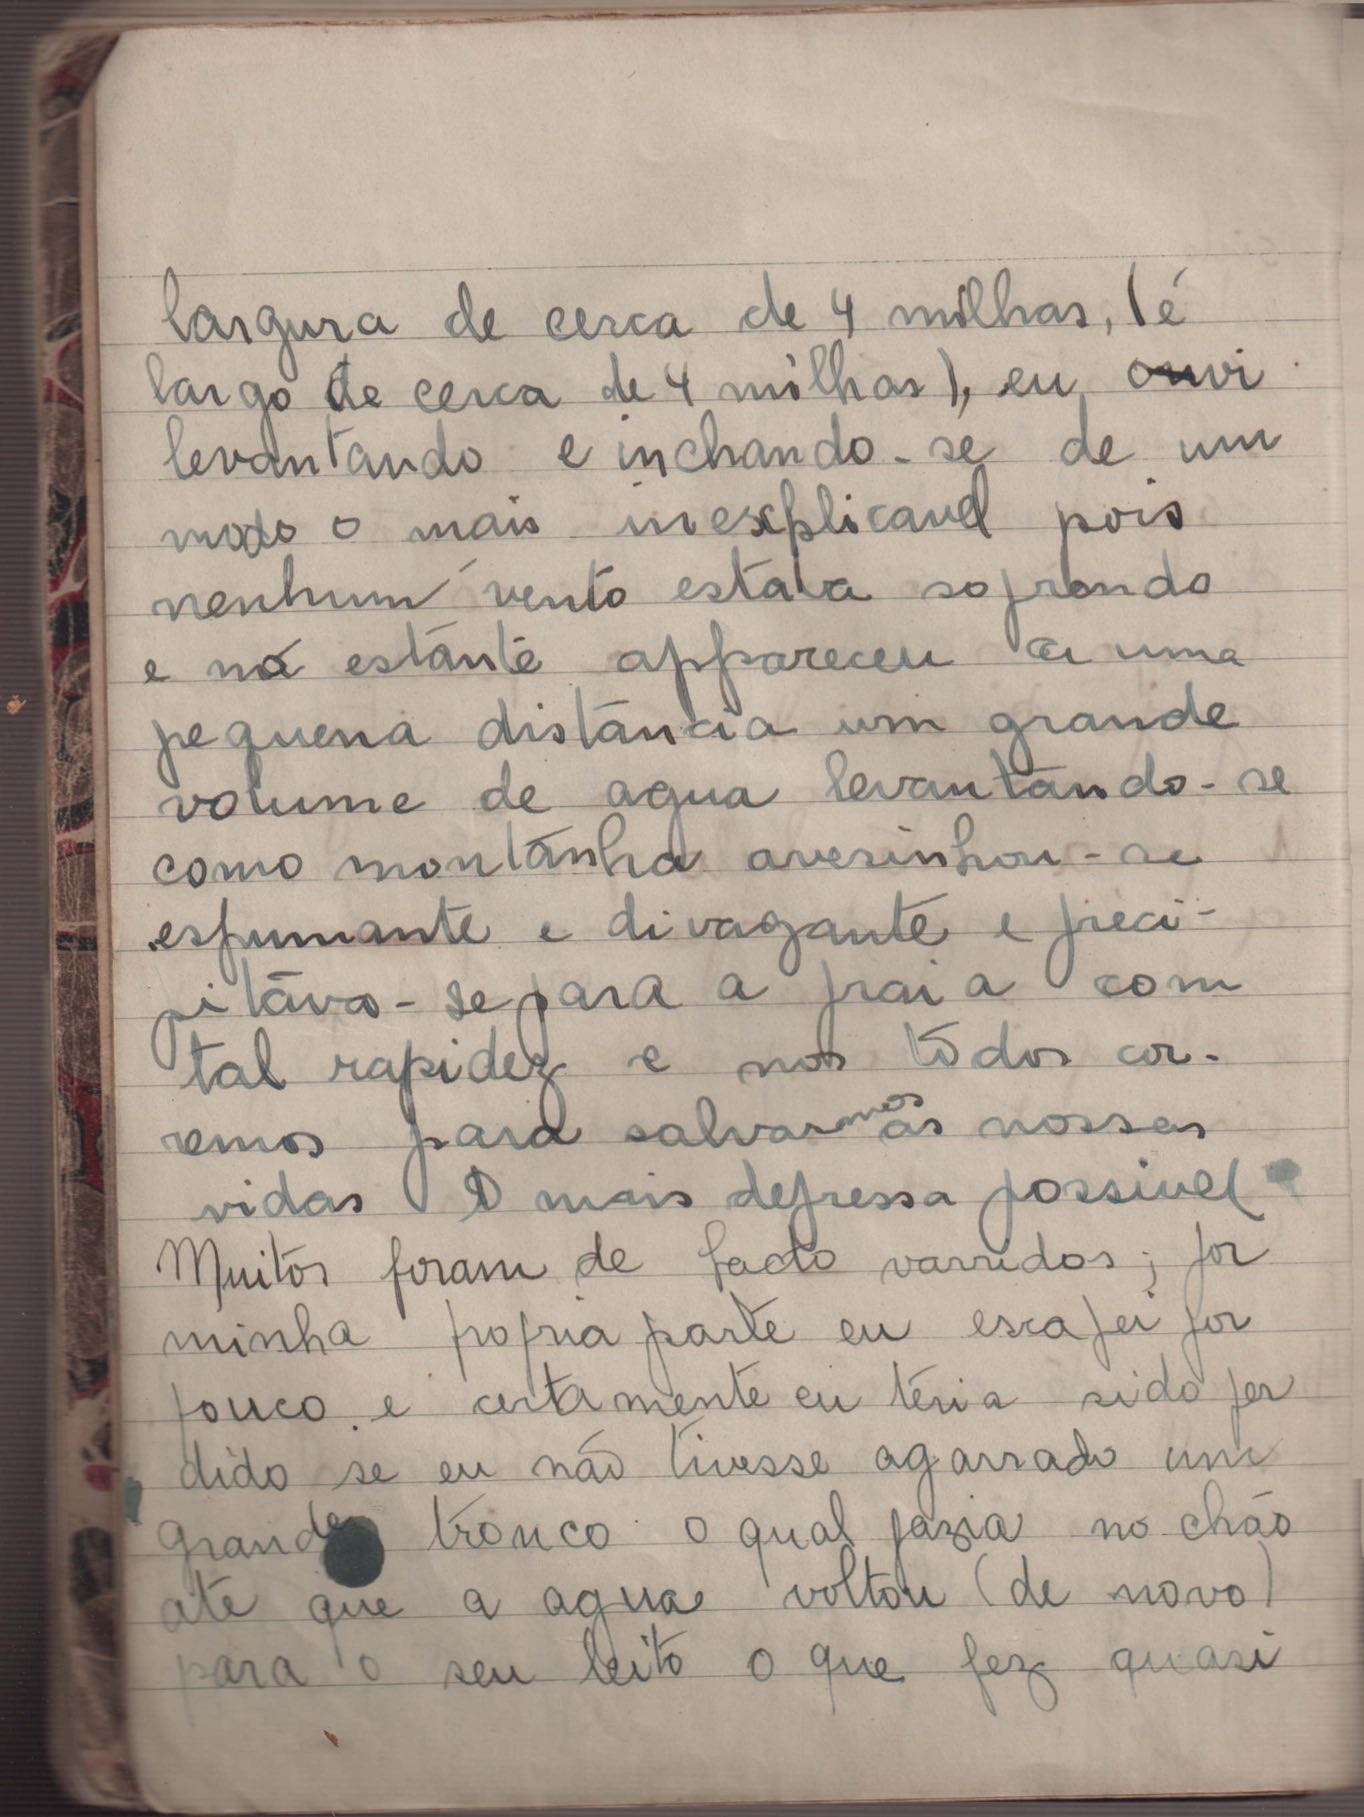 largura de cerca de 4 milhas, (é
largo de cerca de 4 milhas), eu ouvi
levantando e inchando-se de um
modo o mais inexplicavel pois
nenhum vento estava soprando
e no estante appareceu a uma
pequena distância um grande
volume de agua levantando-se
como montanha avesinhou-se
espumante e divagante e preci-
pitava-se para a praia com
tal rapidez e nos todos cor-
remos para salvarmos as nossas
vidas O mais depressa possivel
Muitos foram de facto varridos; por
minha propria parte eu escapei por
pouco e certamente eu teria sido per
dido se eu não tivesse agarrado um
grande tronco o qual jazia no chão
até que a agua voltou (de novo)
para o seu leito o que fez quasi